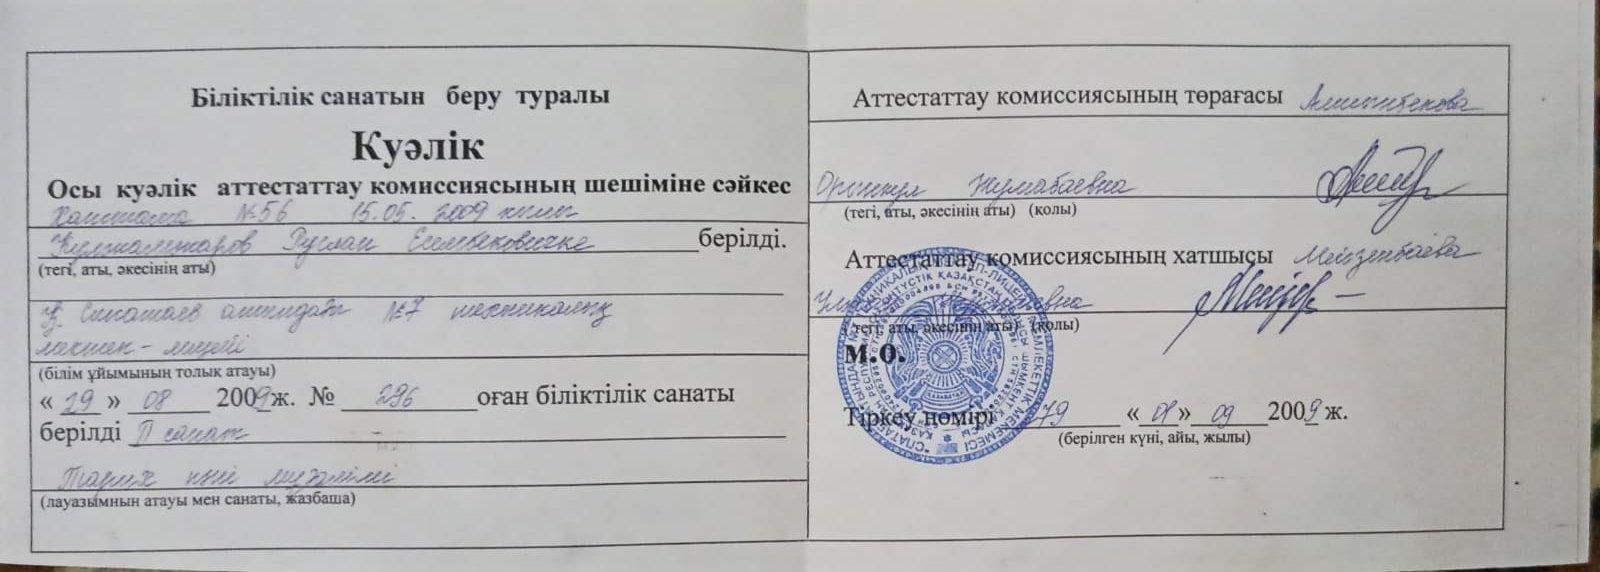 Біліктілік санатын беру туралы
Куәлік
Осы куәлік аттестаттау комиссиясының шешіміне сәйкес
Хаттама №56 15.05.2009 жылы
Руслан берілді.
(тегі, аты, әкесінің аты)
№7 техникалық
мектеп - лицейі
(білім ұйымының толық атауы)
« 29 » 08 2009ж. № 296 оған біліктілік санаты
берілді II санат
Тарих пәні мұғалімі
(лауазымнын атауы мен санаты, жазбаша)
Аттестаттау комиссиясының төрағасы
Жумабаевна
(тегі, аты, әкесінің аты) (қолы)
Аттестаттау комиссиясының хатшысы
тегі, аты, әкесінің аты) (қолы)
М.О.
Тіркеу нөмірі 79 « 01» 09 2009 ж.
(берілген күні, айы, жылы)